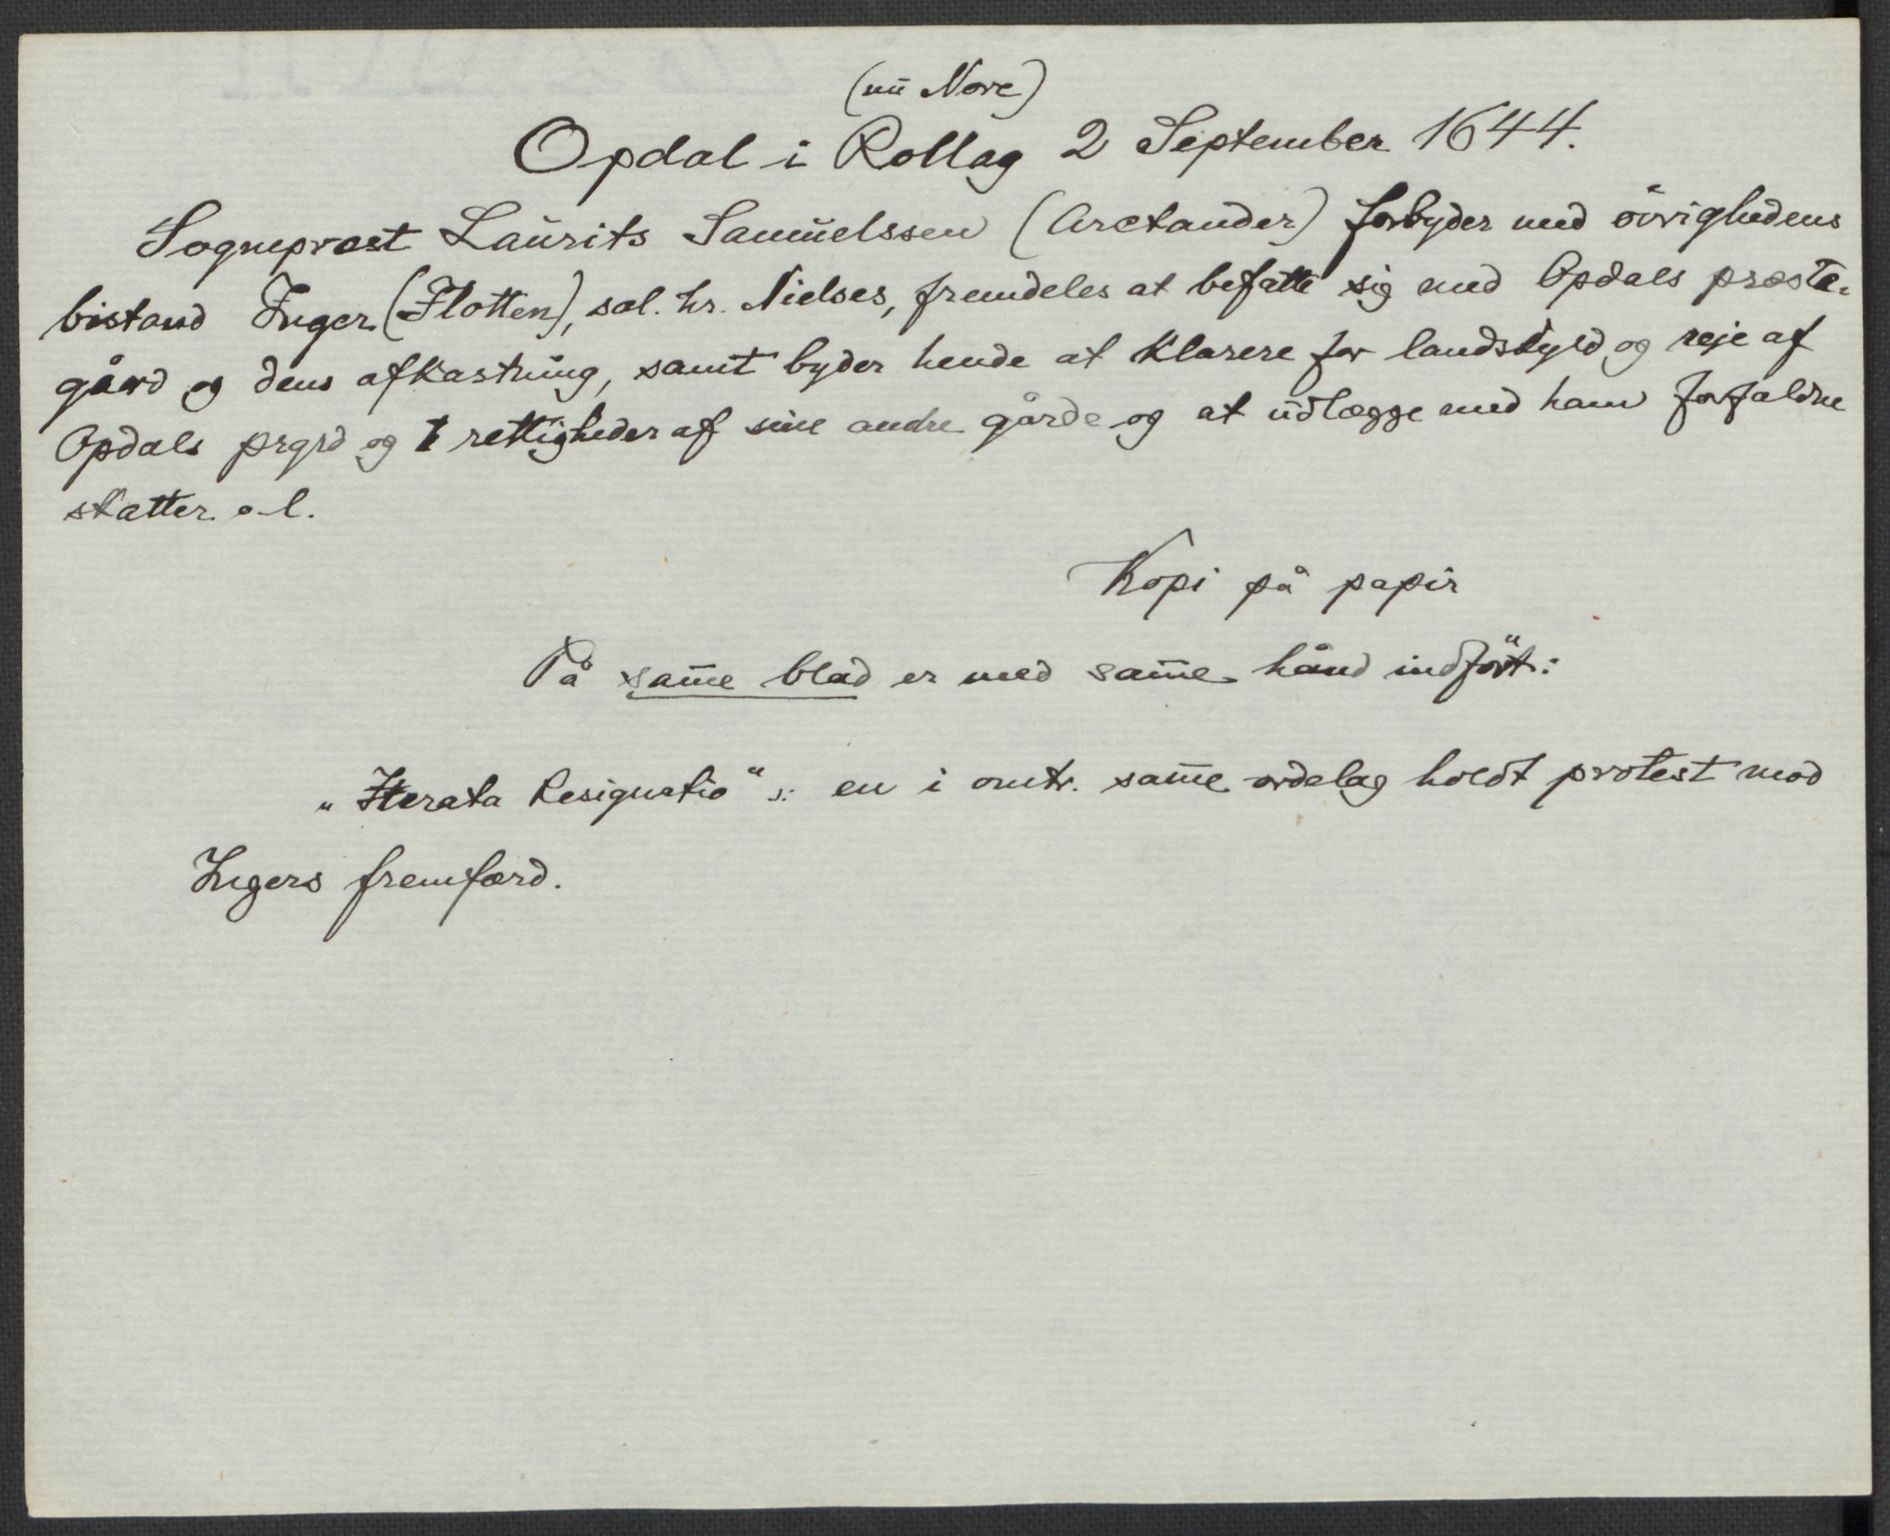 (nu Nore)
Opdal i Rollag 2 September 1644.
Sogneprest Laurits Samuelssen (Arctander) forbyder med övrighedens
bistand Inger (Flotten), sal. hr. Nielses, fremdeles at befatte sig med Opdals præste-
gård og dens afkastning, samt byder hende at klarere for landskyld og leje af
Opdals prgrd og rettigheder af sine andre gårde og at udlægge med ham forfaldne
skatter o. l.
Kopi på papir
På sam̅e blad er med sam̅e hånd indfört:
„Iterata Resignatio“ ɔ: en i omtr. sam̅e ordelag holdt protest mod
Ingers fremfærd.